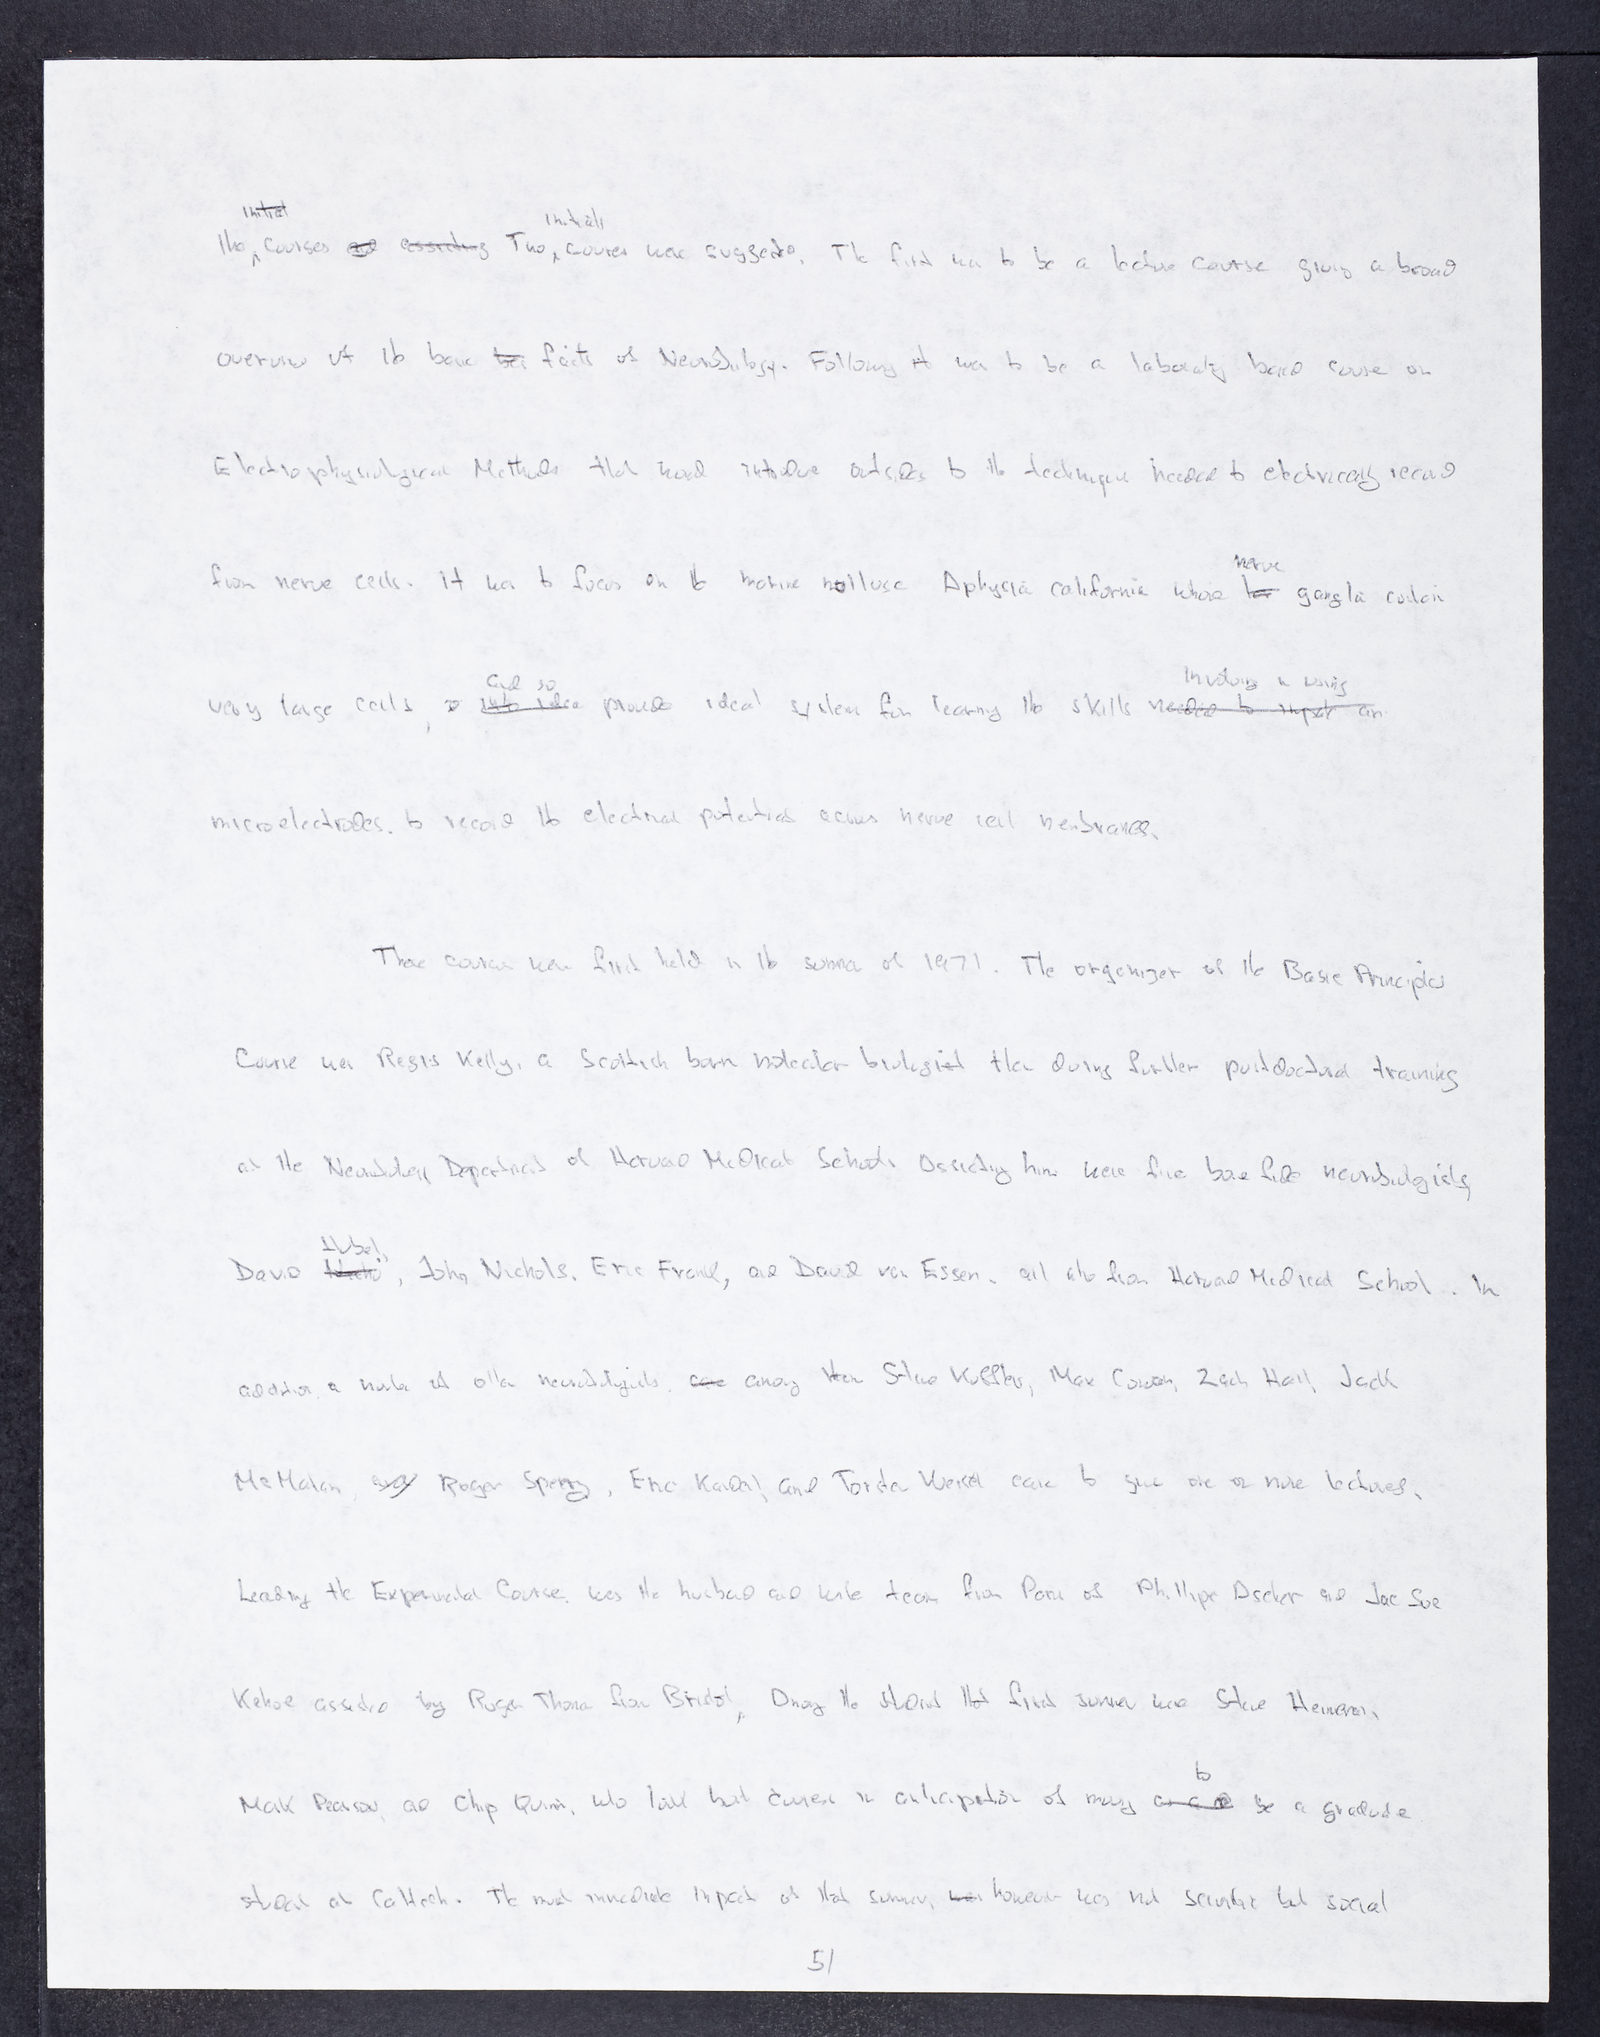 Initial Initially
The courses and assisting Two courses were suggested. The first was to be a lecture course giving a broad
overview of the basic facts of Neurobiology. Following it was to be a laboratory based course on
Electrophysiological Methods that would introduce outsiders to the techniques needed to electrically record
nerve
from nerve cells. It was to focus on the marine mollusc Aplysia california whose ganglia contain
and so involving in using
very large cells, provide ideal system for learning the skills needed to
microelectrodes. to record the electrical potentials across nerve cell membranes.
These courses were first held in the summer of 1971. The organizer of the Basic Principles
Course was Regis Kelly, a Scottish born molecular biologist then doing further postdoctoral training
at the Neurobiology Department of Harvard Medical School. Assisting him were five bone fide neurobiologists,
Hubel,
David , John Nichols, Eric Frank, and David van Essen. all also from Harvard Medical School. In
addition, a number of other neurobiologists, among them Steve Kuffler, Max Cowan, Zach Hall, Jack
McMahan, Roger Sperry, Eric Kandel, and Torsten Wiesel came to give one or more lectures.
Leading the Experimental Course. was the husband and wife team from Paris of Phillipe Ascher and Jac Sue
Kehoe assisted by Roger Thomas from Bristol. Among the students that first summer were Steve Heineman,
to
Mark Pearson, and Chip Quinn, who took both courses in anticipation of many a graduate
student at Caltech. The most immediate impact of that summer, however was not scientific but social
51